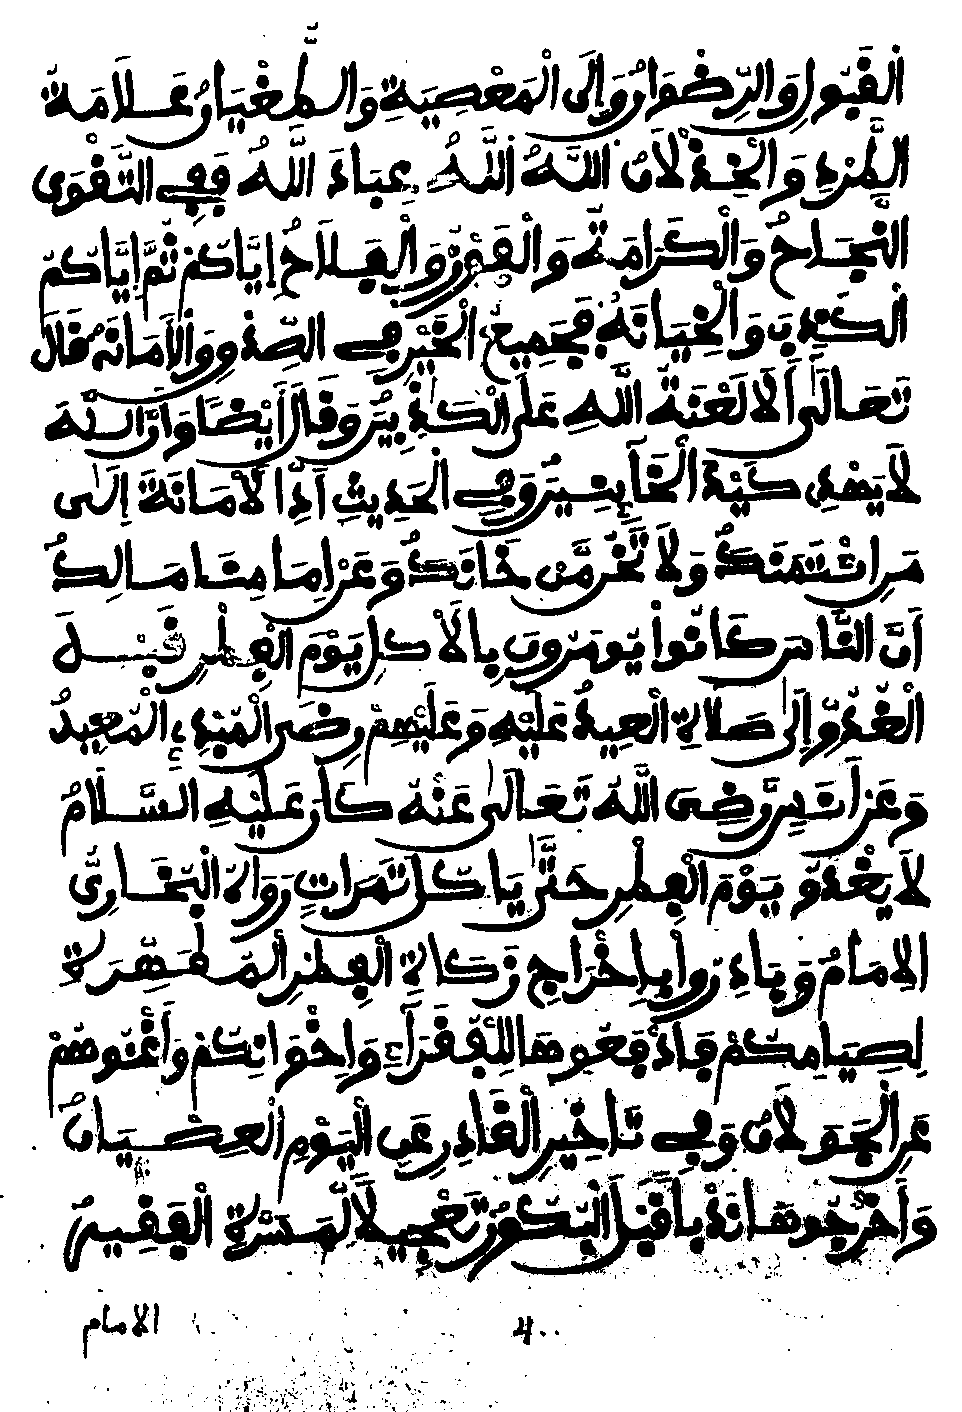 الْقَبُولِ وَالرِّضْوَانُ وَإِلَى الْمَعْصِيَةِ وَالطُّغْيَانُ عَلَامَةُ
الطَّرْدِ وَالْخِذْلَانُ اللَّهُ اللَّهُ عِبَادَ اللَّهُ فَفِي التَّقْوَى
النَّجَاحُ وَالْكَرَامَةُ وَالْفَوْزُ وَالْفَلَاحُ إِيَّاكُمْ ثُمَّ إِيَّاكُمْ
الْكِذْبَ وَالْخِيَانَةُ فَجَمِيعُ الْخَيْرِ فِي الصِّدْقِ وَالْأَمَانَةُ قَالَ
تَعَالَى أَلَا لَعْنَةُ اللَّهِ عَلَى الْكَاذِبِينَ وَقَالَ أَيْضًا وَأَنَّ اللَّهَ
لَا يَهْدِي كَيْدَ الْخَائِنِينَ وَفِي الْحَدِيثِ أَدِّ الْأَمَانَةَ إِلَى
مَنِ ائْتَمَنَكَ وَلَا تَخُنْ مَنْ خَانَكَ وَعَنْ إِمَامِنَا مَالِكُ
أَنَّ النَّاسَ كَانُوا يُومَرُونَ بِالْأَكْلِ يَوْمَ الْفِطْرِ قَبْلَ
الْغُدُوِّ إِلَى صَلَاةِ الْعِيدُ عَلَيْهِ وَعَلَيْهِمْ رِضَى الْمُبْدِئِ الْمُعِيدُ
وَعَنْ أَنَسٍ رَضِيَ اللَّهُ تَعَالَى عَنْهُ كَانَ عَلَيْهِ السَّلَامُ
لَا يَغْدُو يَوْمَ الْفِطْرِ حَتَّى يَاكُلَ تَمَرَاتٍ رَوَاهُ الْبُخَارِيُّ
الْإِمَامُ وَبَادِرُوا بِإِخْرَاجِ زَكَاةِ الْفِطْرِ الْمُطَهِّرَةِ
لِصِيَامِكُمْ فَادْفَعُوهَا لِلْفُقَرَاءِ وَإِخْوَانِكُمْ وَأَغْنُوهُمْ
عَنِ الْجَوَلَانُ وَفِي تَاخِيرِ الْقَادِرِ عَنِ الْيَوْمِ الْعِصْيَانُ
وَأَخْرِجُوهَا نَدْبًا قَبْلَ الْبُكُورِ تَعْجِيلًا لِمَسَرَّةِ الْفَقِيرُ
الإمام
40